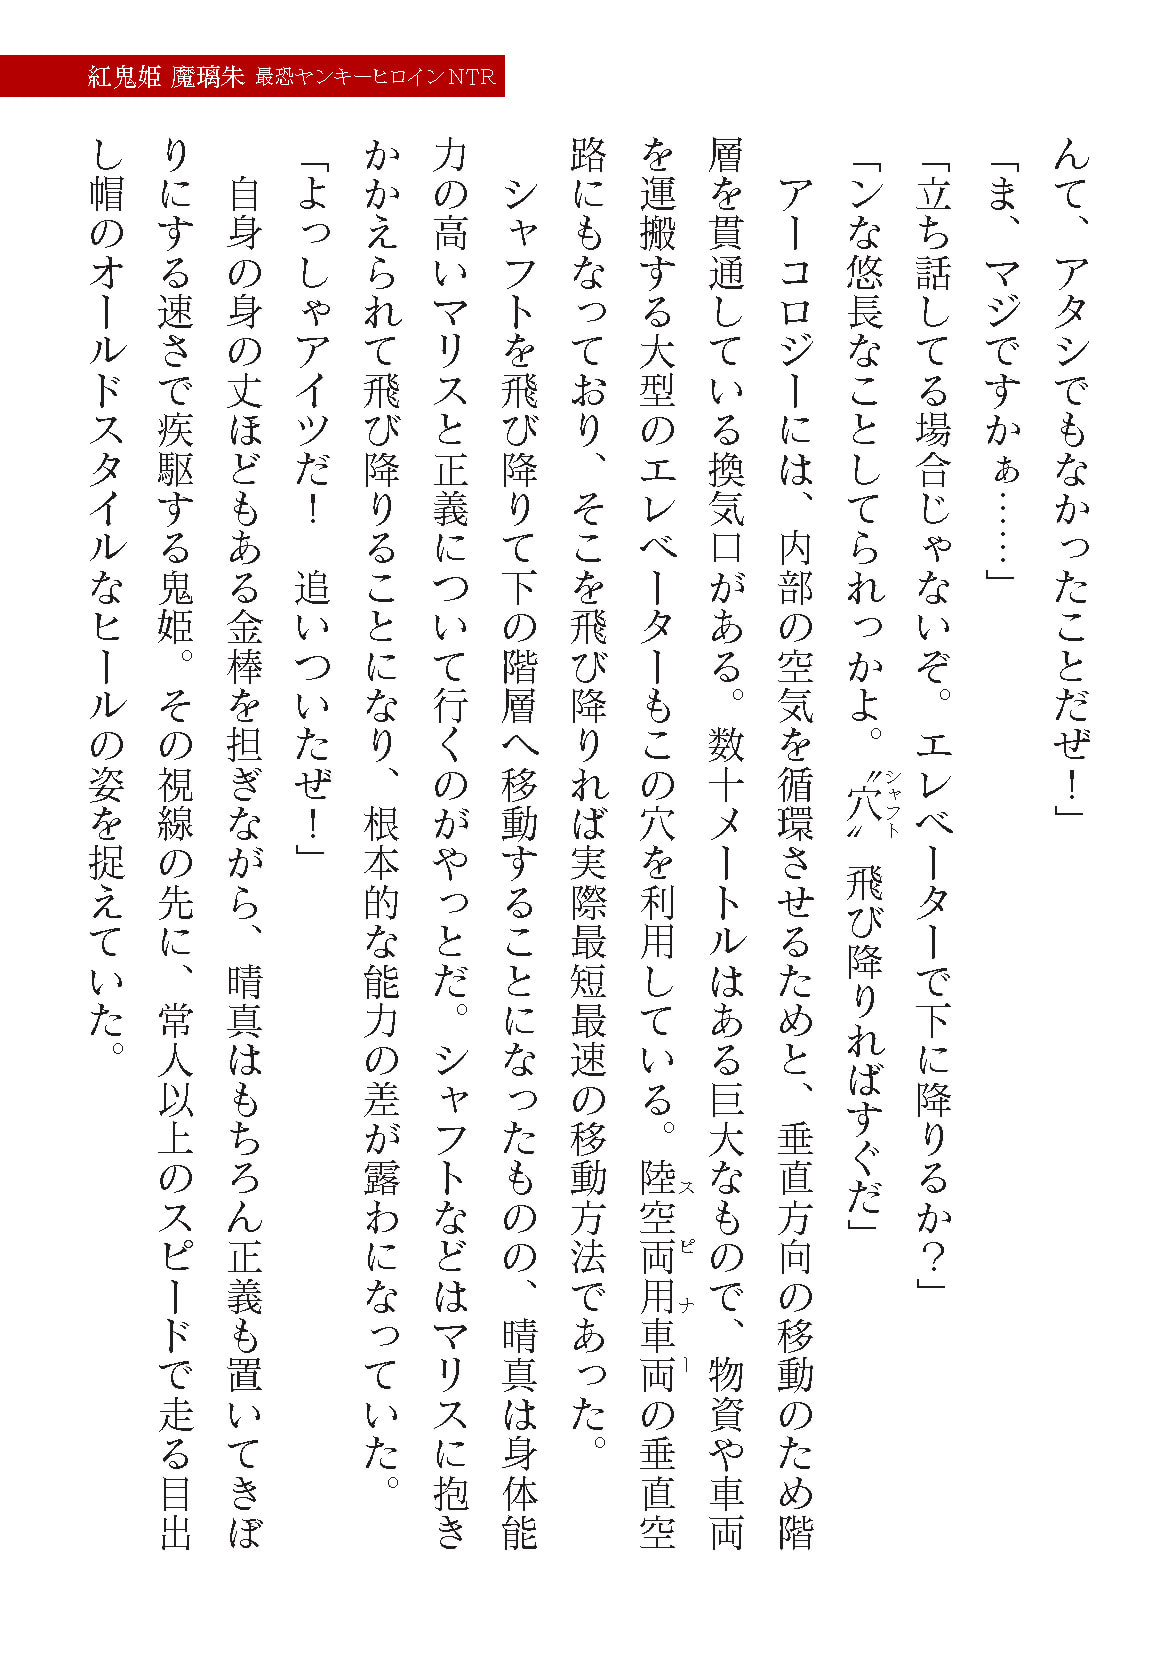 紅鬼姫 魔璃朱 最恐ヤンキーヒロインNTR
んて、アタシでもなかったことだぜ！」
「ま、マジですかぁ……」
「立ち話してる場合じゃないぞ。エレベーターで下に降りるか？」
「ンな悠長なことしてられっかよ。〝穴〟飛び降りればすぐだ」
シャフト
アーコロジーには、内部の空気を循環させるためと、垂直方向の移動のため階
層を貫通している換気口がある。数十メートルはある巨大なもので、物資や車両
を運搬する大型のエレベーターもこの穴を利用している。陸空両用車両の垂直空
スピナー
路にもなっており、そこを飛び降りれば実際最短最速の移動方法であった。
シャフトを飛び降りて下の階層へ移動することになったものの、晴真は身体能
力の高いマリスと正義について行くのがやっとだ。シャフトなどはマリスに抱き
かかえられて飛び降りることになり、根本的な能力の差が露わになっていた。
「よっしゃアイツだ！　追いついたぜ！」
自身の身の丈ほどもある金棒を担ぎながら、晴真はもちろん正義も置いてきぼ
りにする速さで疾駆する鬼姫。その視線の先に、常人以上のスピードで走る目出
し帽のオールドスタイルなヒールの姿を捉えていた。